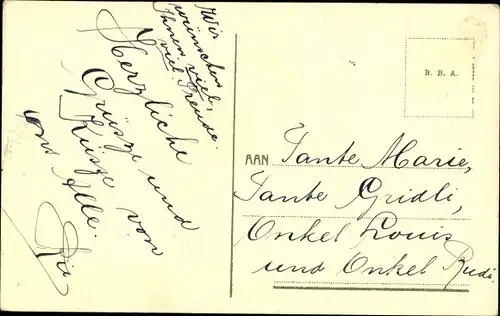 Wir
wünschen
Ihnen viel,
viel Freude.
Herzliche
Grüsze und
Küsze von
ons Alle.
Rie
B. B. A.
AAN Tante Marie,
Tante Gridli,
Onkel Louis
und Onkel Rudi.